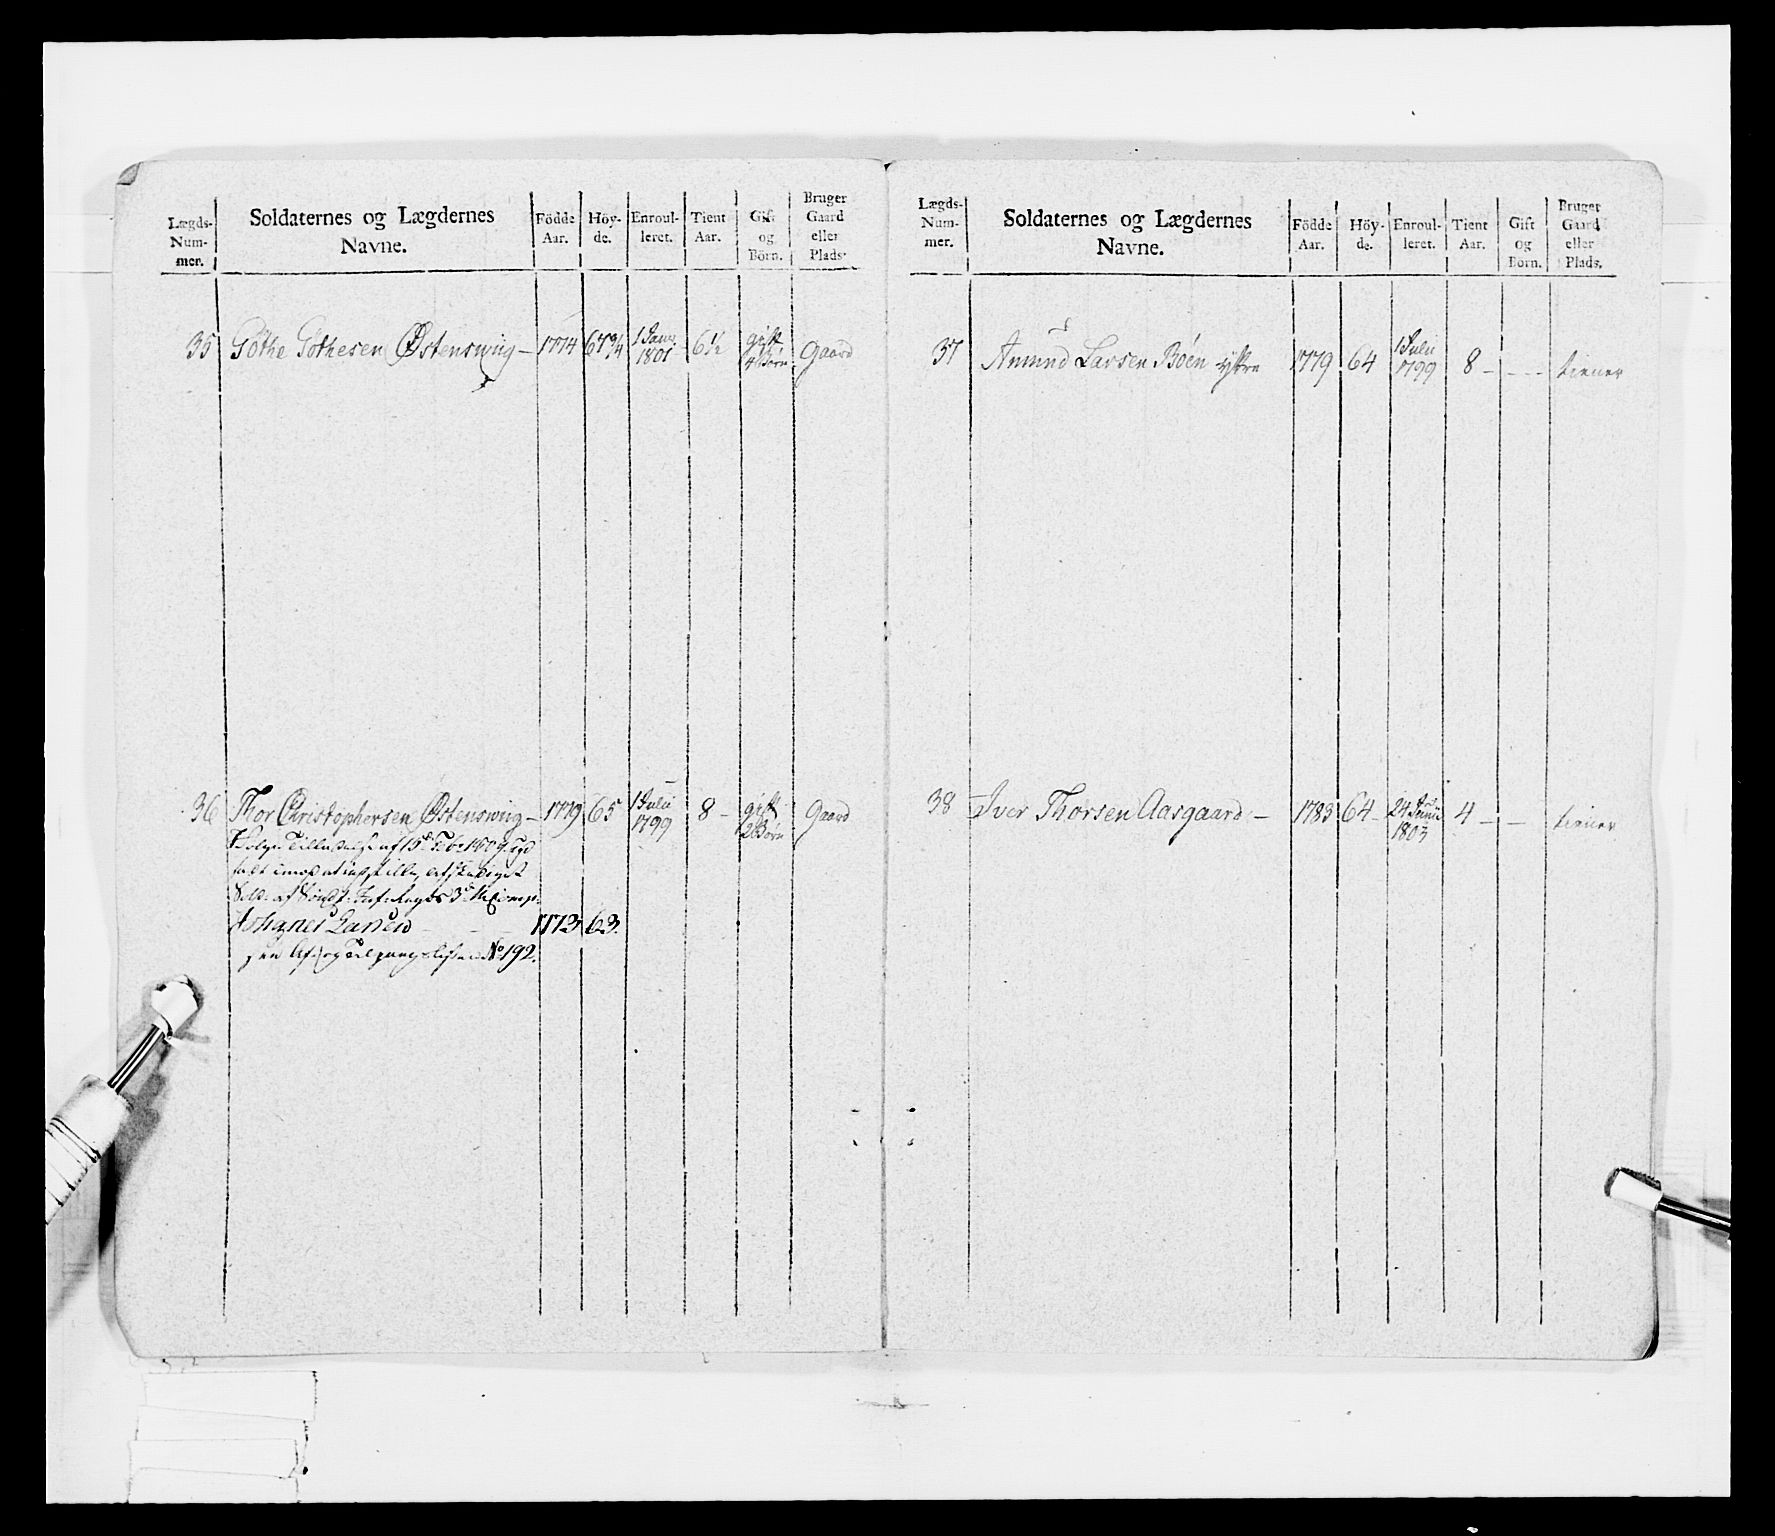 Lægds-Num-mer. | Soldaternes og Lægdernes Navne. | Födde Aar. | Höy-de. | Enroul-leret. | Tient Aar. | Gift og Börn. | Bruger Gaard eller Plads.
35 Göthe Göthesen Østenswiig – 1774 67 3/4 1 Janv. 1801 – 6½ gift 4 Børn Gaard
36 Thor Christophersen Østenswiig – 1779 65 1 Julii 1799 8 – gift 2 Børn Gaard
af 15de Feb: 1809
3de
Johanes Larsen – 1773 63.
No 192.
Lægds-Num-mer. | Soldaternes og Lægdernes Navne. | Födde Aar. | Höy-de. | Enroul-leret. | Tient Aar. | Gift og Börn. | Bruger Gaard eller Plads.
37 Amund Larsen Böen yttre 1779 64 1 Julii 1799 8 – – – – tiener
38 Iver Thorsen Aasgaard – 1783 64 – 24 Junii 1803 4 – – tiener